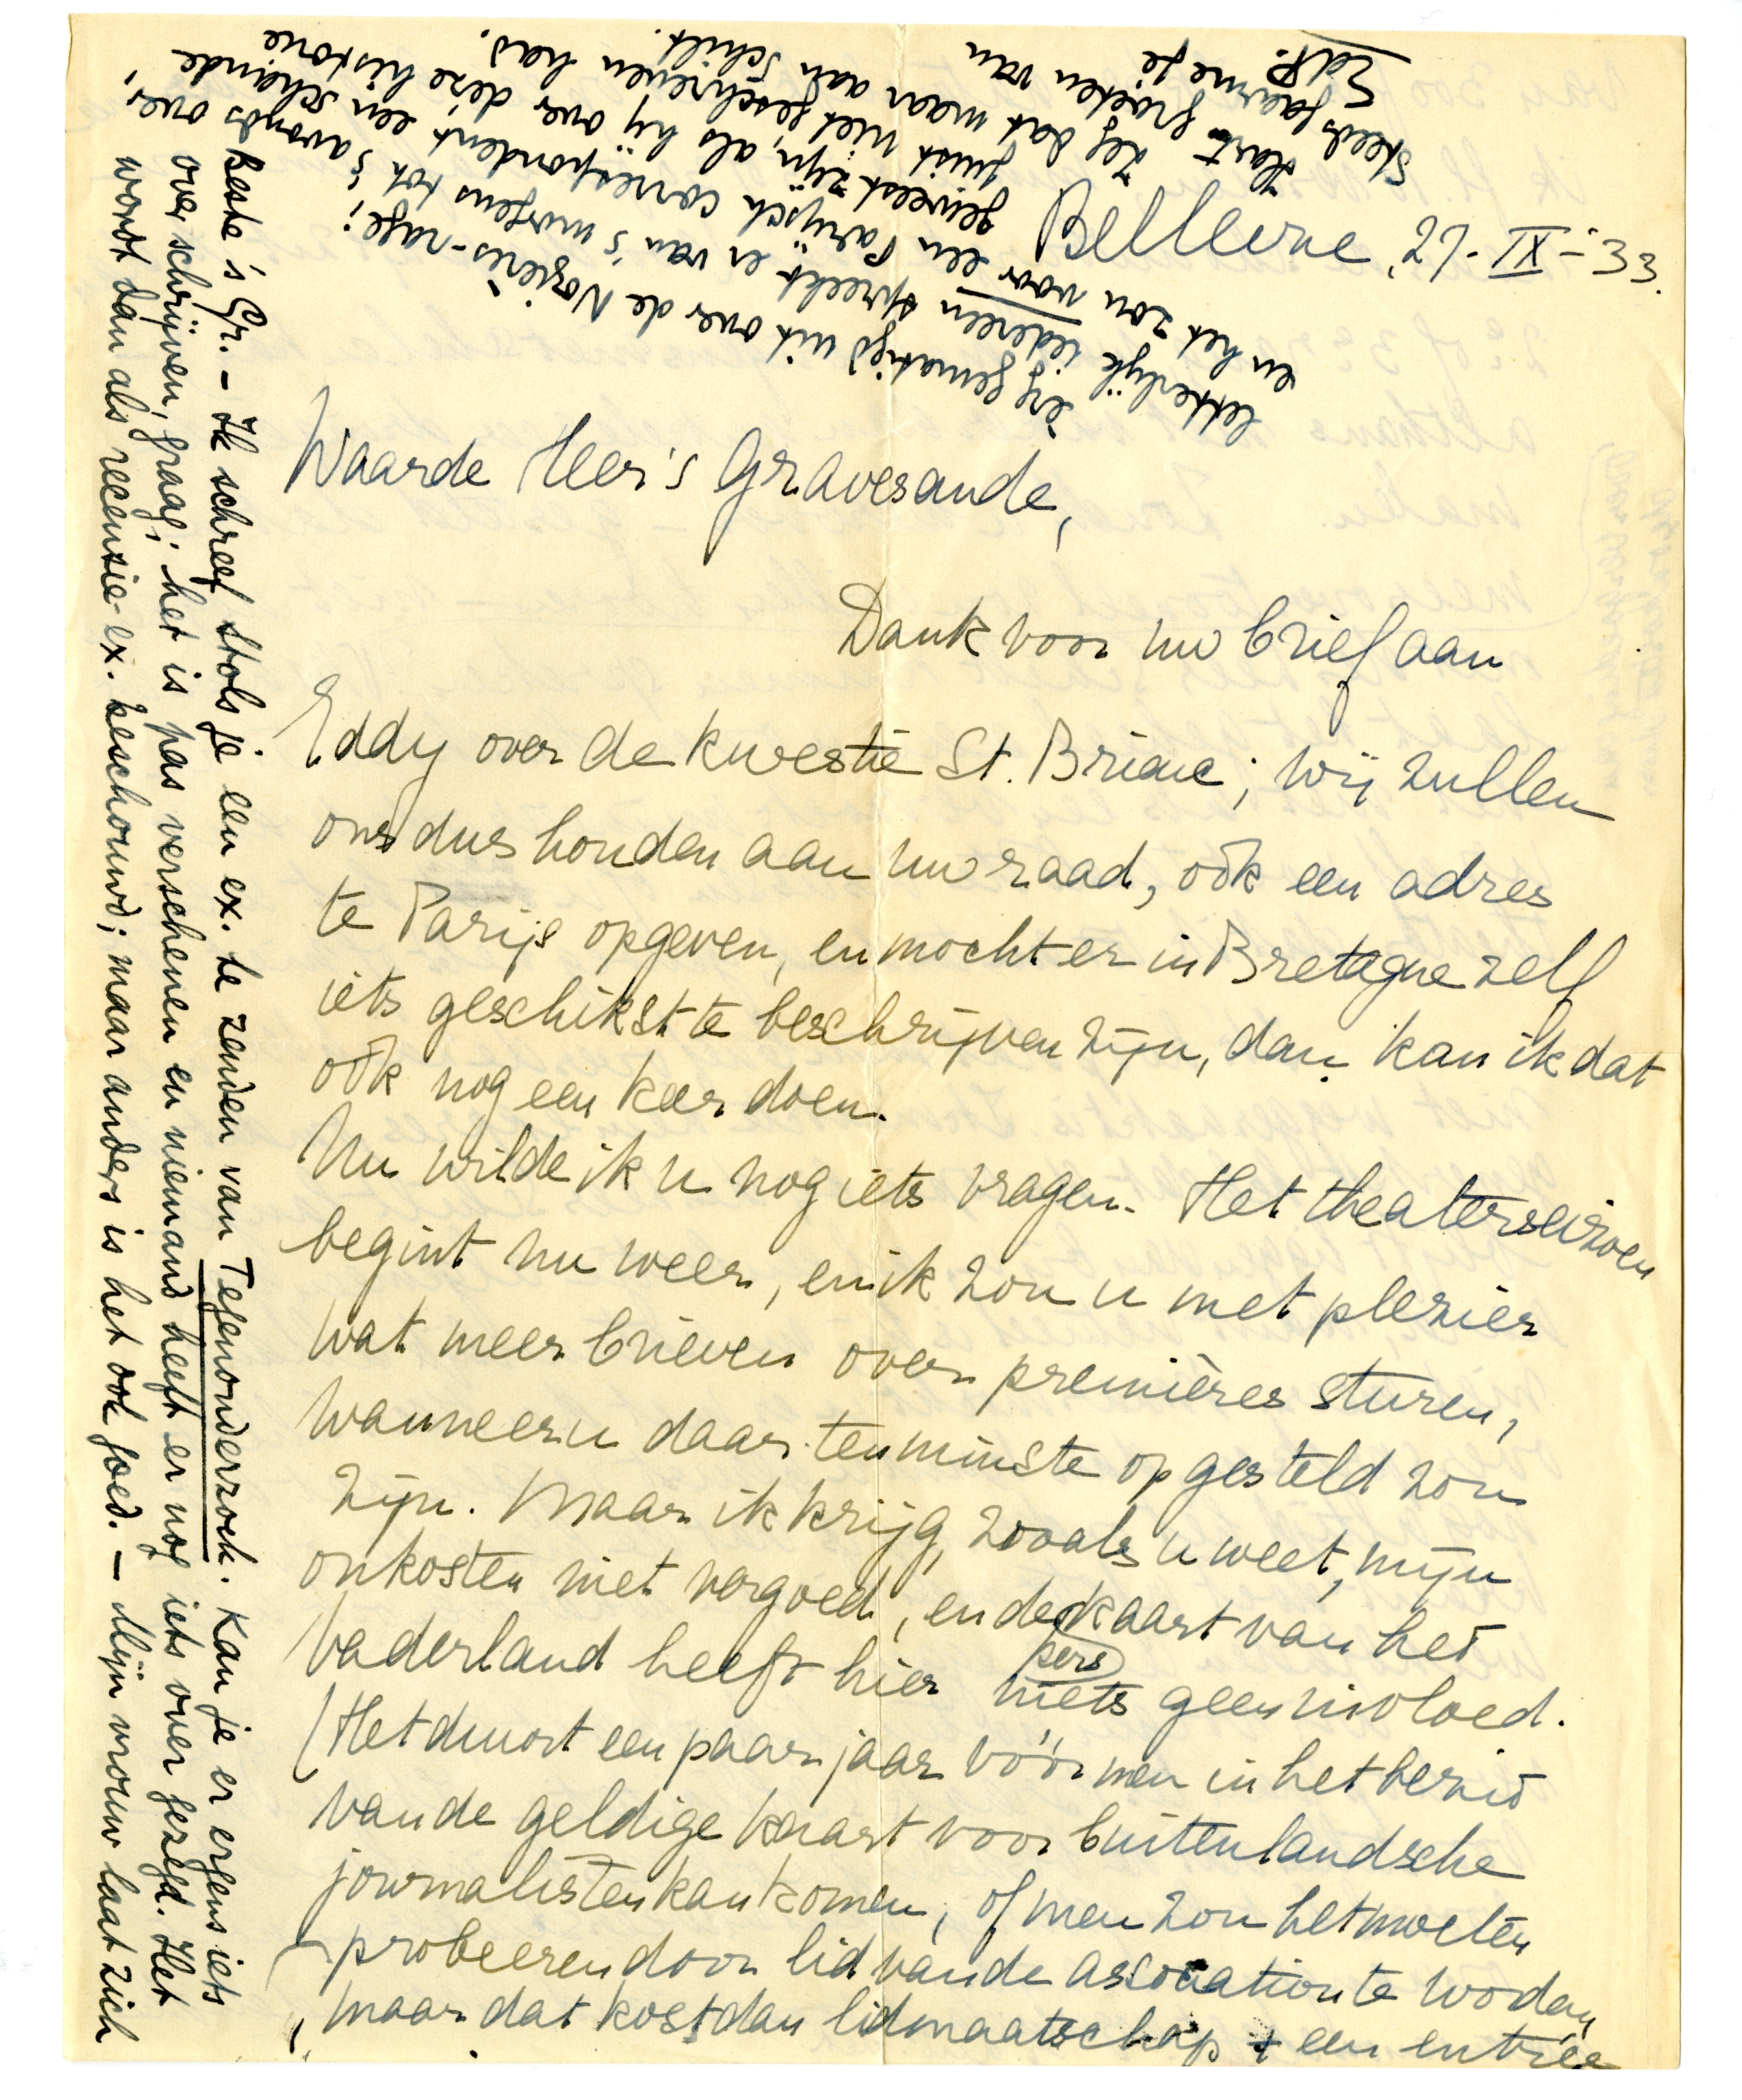 Bellevue, 27-IX-33.
Waarde Heer 's Gravesande,
Dank voor uw brief aan
Eddy over de kwestie St. Briac; wij zullen
ons dus houden aan uw raad, ook een adres
te Parijs opgeven, en mocht er in Bretagne zelf
iets geschikts te beschrijven zijn, dan kan ik dat
ook nog een keer doen.
Nu wilde ik u nog iets vragen. Het theaterseizoen
begint nu weer, en ik zou u met plezier
wat meer brieven over premières sturen,
wanneer u daar tenminste op gesteld zou
zijn. Maar ik krijg, zooals u weet, mijn
onkosten niet vergoed, en de perskaart van het
Vaderland heeft hier niets geen invloed.
(Het duurt een paar jaar vóór men in het bezit
van de geldige kaart voor buitenlandsche
journalisten kan komen, of men zou het moeten
probeeren door lid van de association te worden,
maar dat kost dan lidmaatschap + een entrée
Beste 's Gr. — Ik schreef Stols je een ex. te zenden van Tegenonderzoek. Kan je er ergens iets
over schrijven, graag; het is pas verschenen en niemand heeft er nog iets over gezegd. Het
wordt dan als recensie-ex. beschouwd; maar anders is het ook goed. — Mijn vrouw laat zich
erg gematigd uit over de Nozières-rage;
letterlijk iedereen spreekt er van 's morgens tot 's avonds over,
en het zou voor een Parijsch correspondent een schande
geweest zijn, als hij over deze historie
juist niet geschreven had.
Zeg dat maar aan Schilt.
Hart. groeten van
steeds gaarne je
EdP.